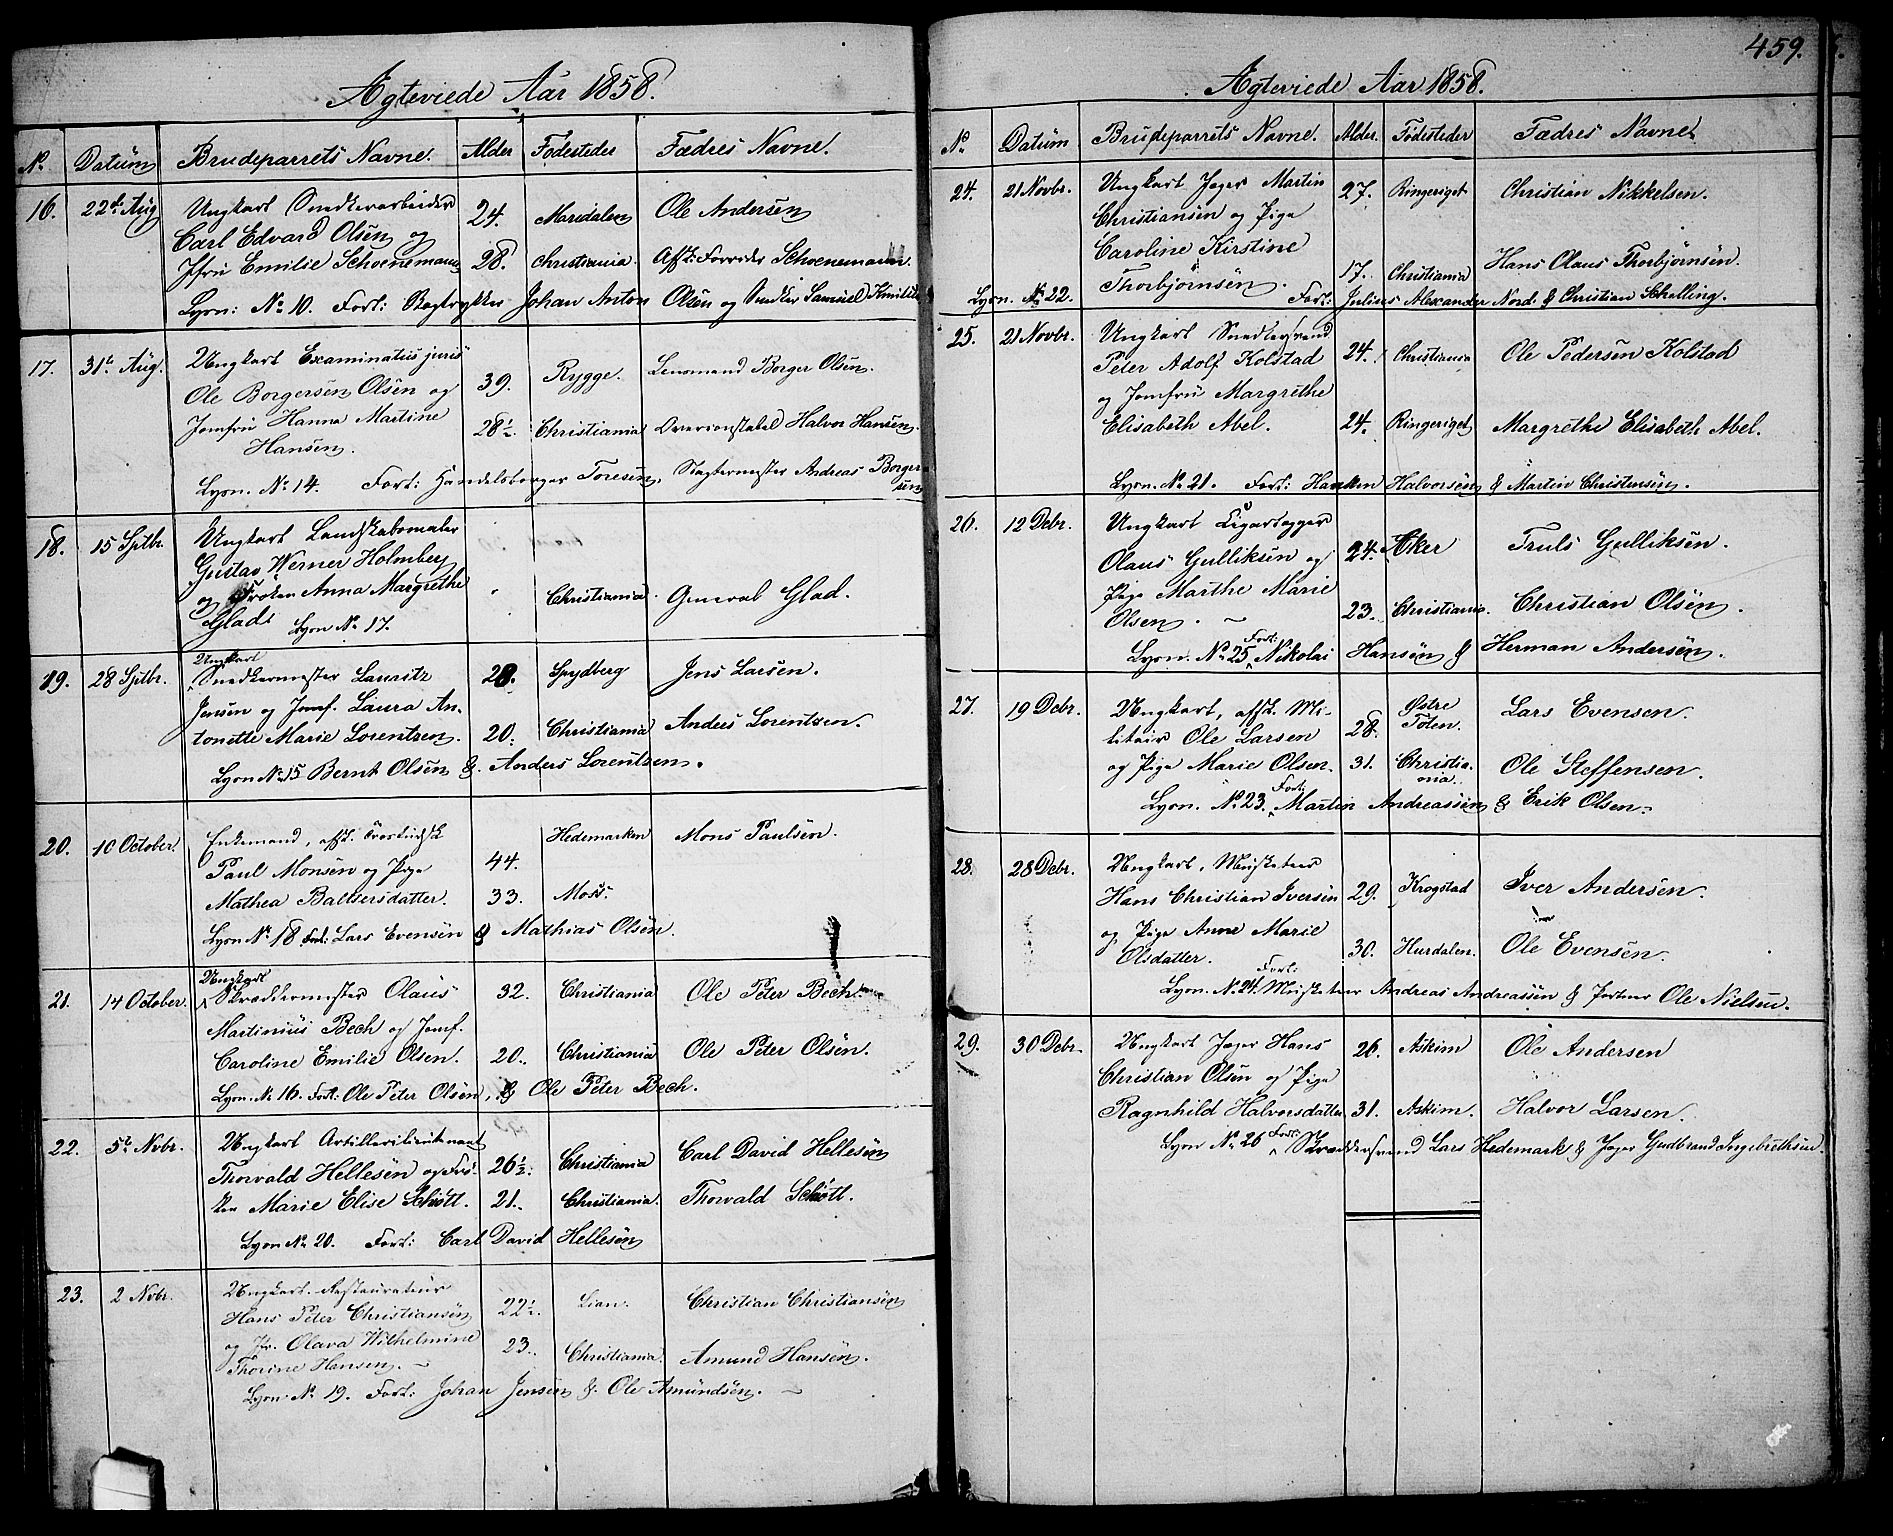 Ægteviede Aar 1858.
No. Datum Brudeparrets Navne. Alder Fødesteder Fædres Navne.
16. 22de Aug Ungkarl Snedkerarbeider 24. Maridalen Ole Andersen
Carl Edvard Olsen og
Jfru Emilie Schoenemann 28. Christiania. Afsk: Schoenemann.
Lysn: No 10. Forl: Bogtrykker Johan Anton Olsen og Snedker Samuel
17. 31te Aug. Ungkarl Examinatus juris 39. Rygge. Lensmand Borger Olsen.
Ole Borgersen Olsen og
Jomfru Hanna Martine 28½ Christiania Halvor Hansen.
Hansen.
Lysn. No 14. Forl: Handelsborger Toresen, Slagtermester Andreas Borger
sen
18. 15 Sptbr. Ungkarl Landskabsmaler
Gustav Werner Holmberg
og Frøken Anna Margrethe Christiania. General Glad.
Glad. Lysn No 17.
19. 28 Sptbr. Ungkarl
Snedkermester Lauritz 28. Spydberg Jens Larsen.
Jensen og Jomf. Laura An-
tonette Marie Lorentzen. 20. Christiania Anders Lorentzen.
Lysn No 15 Bernt Olsen & Anders Lorentzen.
20. 10 October. Enkemand, afsk. 44. Hedemarken Mons Paulsen.
Paul Monsen og Pige
Mathea Baltsersdatter. 33. Moss.
Lysn No 18 Forl: Lars Evensen & Mathias Olsen.
21. 14 October. Ungkarl
Skræddermester Olaus 32. Christiania Ole Peter Bech.
Martinius Bech og Jomf.
Caroline Emilie Olsen. 20. Christiania Ole Peter Olsen.
Lysn. No 16. Forl: Ole Peter Olsen, & Ole Peter Bech.
22. 5te Nvbr. Ungkarl Artillerilieutenant
Thorvald Hellesen og Frø- 26½. Christiania Carl David Hellesen
ken Marie Elise Schøtt. 21. Christiania. Thorvald Schøtt.
Lysn No. 20. Forl: Carl David Hellesen
23. 2 Nvbr. Ungkarl. Restaurateur
Hans Peter Christiansen 22½. Lian. Christian Christiansen
og Jfr. Olava Wilhelmine 23. Christiania. Amund Hansen.
Thorine Hansen.
Lysn. No. 19. Forl: Johan Jensen & Ole Amundsen.
459.
Ægteviede Aar 1858.
No Datum Brudeparrets Navne. Alder. Fødesteder Fædres Navne
24. 21 Novbr. Ungkarl Jæger Martin 27. Ringeriget Christian Nikkelsen.
Christiansen og Pige
Caroline Kirstine 17. Christiania Hans Olaus Thorbjørnsen.
Thorbjørnsen.
Lysn. No 22. Forl: Julius Alexander Nord. & Christian Schelling.
25. 21 Novbr. Ungkarl Snedkersvend 24. Christiania Ole Pedersen Kolstad
Peter Adolf Kolstad
og Jomfru Margrethe
Elisabeth Abel. 24. Ringeriget Margrethe Elisabeth Abel.
Lysn. No 21. Forl: Halvorsen & Martin Christensen.
26. 12 Debr. Ungkarl Cigar
Olaus Gulliksen og 24. Aker Truls Gulliksen.
Pige Marthe Marie
Olsen. 23. Christiania. Christian Olsen.
Lysn. No 25 Forl: Nikolai Hansen & Herman Andersen.
27. 19 Debr. Ungkarl, afsk. Mi- 28. Østre Toten. Lars Evensen.
litair Ole Larsen
og Pige Marie Olsen. 31. Christia-
nia. Ole Steffensen.
Lysn. No. 23. Forl: Martin Andreassen & Erik Olsen.
28. 28 Debr. Ungkarl, Musketeer
Hans Christian Iversen 29. Krogstad Iver Andersen.
og Pige Anne Marie
Olsdatter. 30. Hurdalen. Ole Evensen.
Lysn. No 24. Forl: Musketeer Andreas Andreassen & Ole Nielsen.
29. 30 Debr. Ungkarl Jæger Hans 26. Askim Ole Andersen
Christian Olsen og Pige
Ragnhild Halvorsdatter 31. Askim. Halvor Larsen.
Lysn No 26 Forl: Skræddersvend Lars Hedemark & Jæger Gudbrand Ingebrethsen.